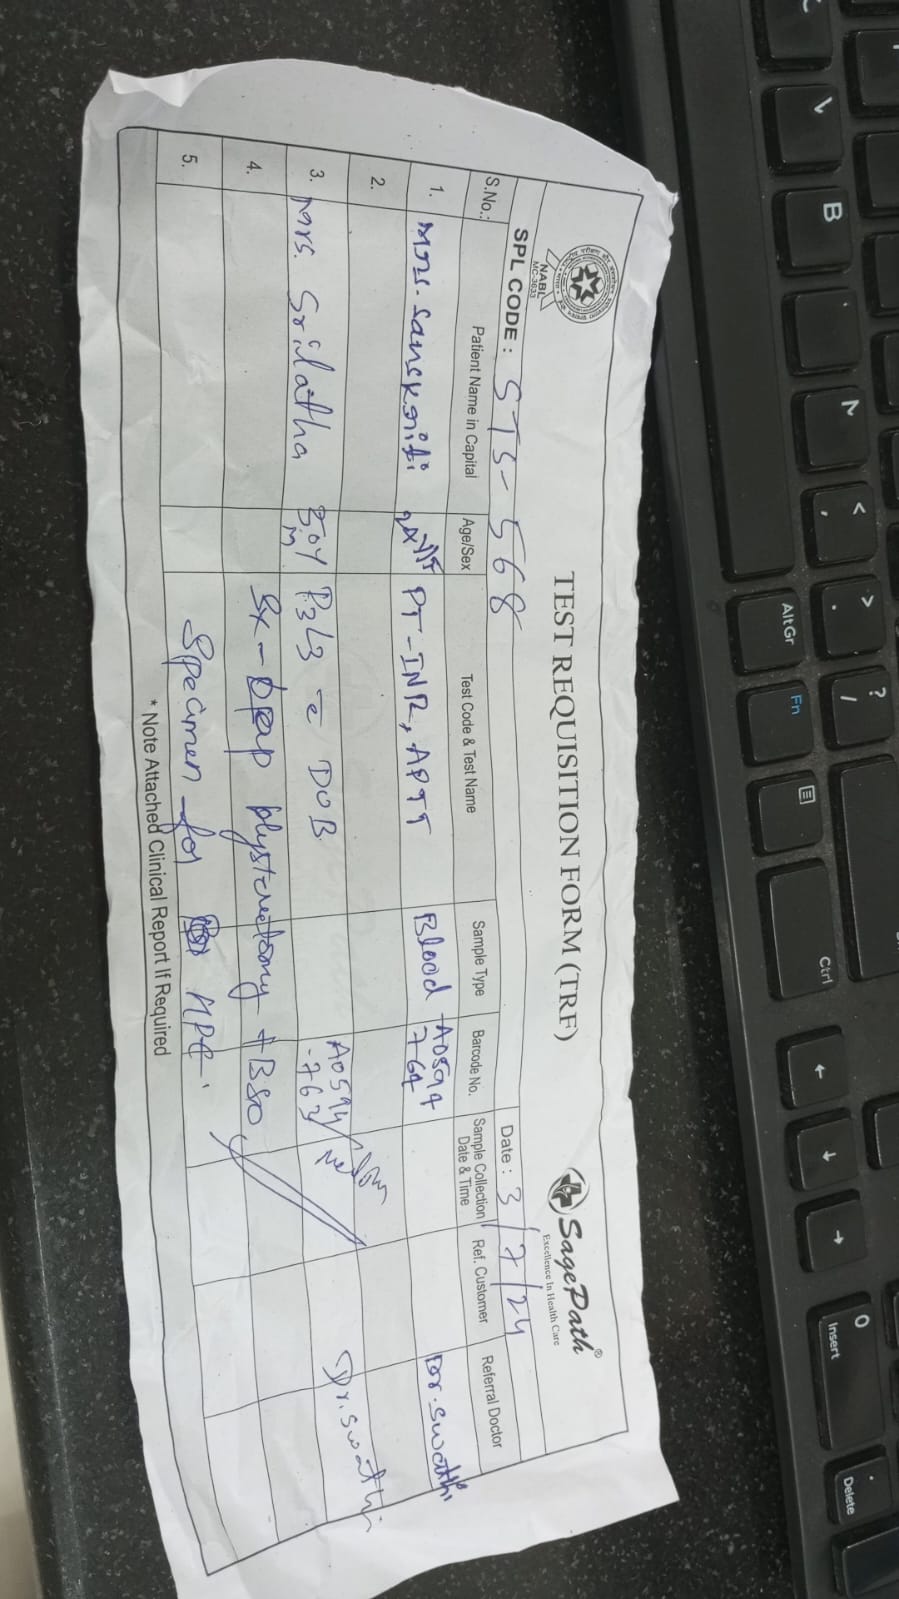 NABL
MC-3633
TEST REQUISITION FORM (TRF)
SagePath®
Excellence In Health Care
SPL CODE : STS-568
Date : 3/7/24
S.No.: Patient Name in Capital Age/Sex Test Code & Test Name Sample Type Barcode No. Sample Collection Date & Time Ref. Customer Referral Doctor
1. Mrs. Sanskriti PT-INR, APTT Blood Dr. Swathi
2.
3. Mrs. Srilatha P3L3 c DUB A0594 -763 Dr. Swathi
4. Sx - Lap hysterectomy + BSO
5. Specimen for HPE.
* Note Attached Clinical Report If Required
B
N
<
,
>
.
?
/
AltGr
Fn
Ctrl
←
↓
→
0
Insert
.
Delete